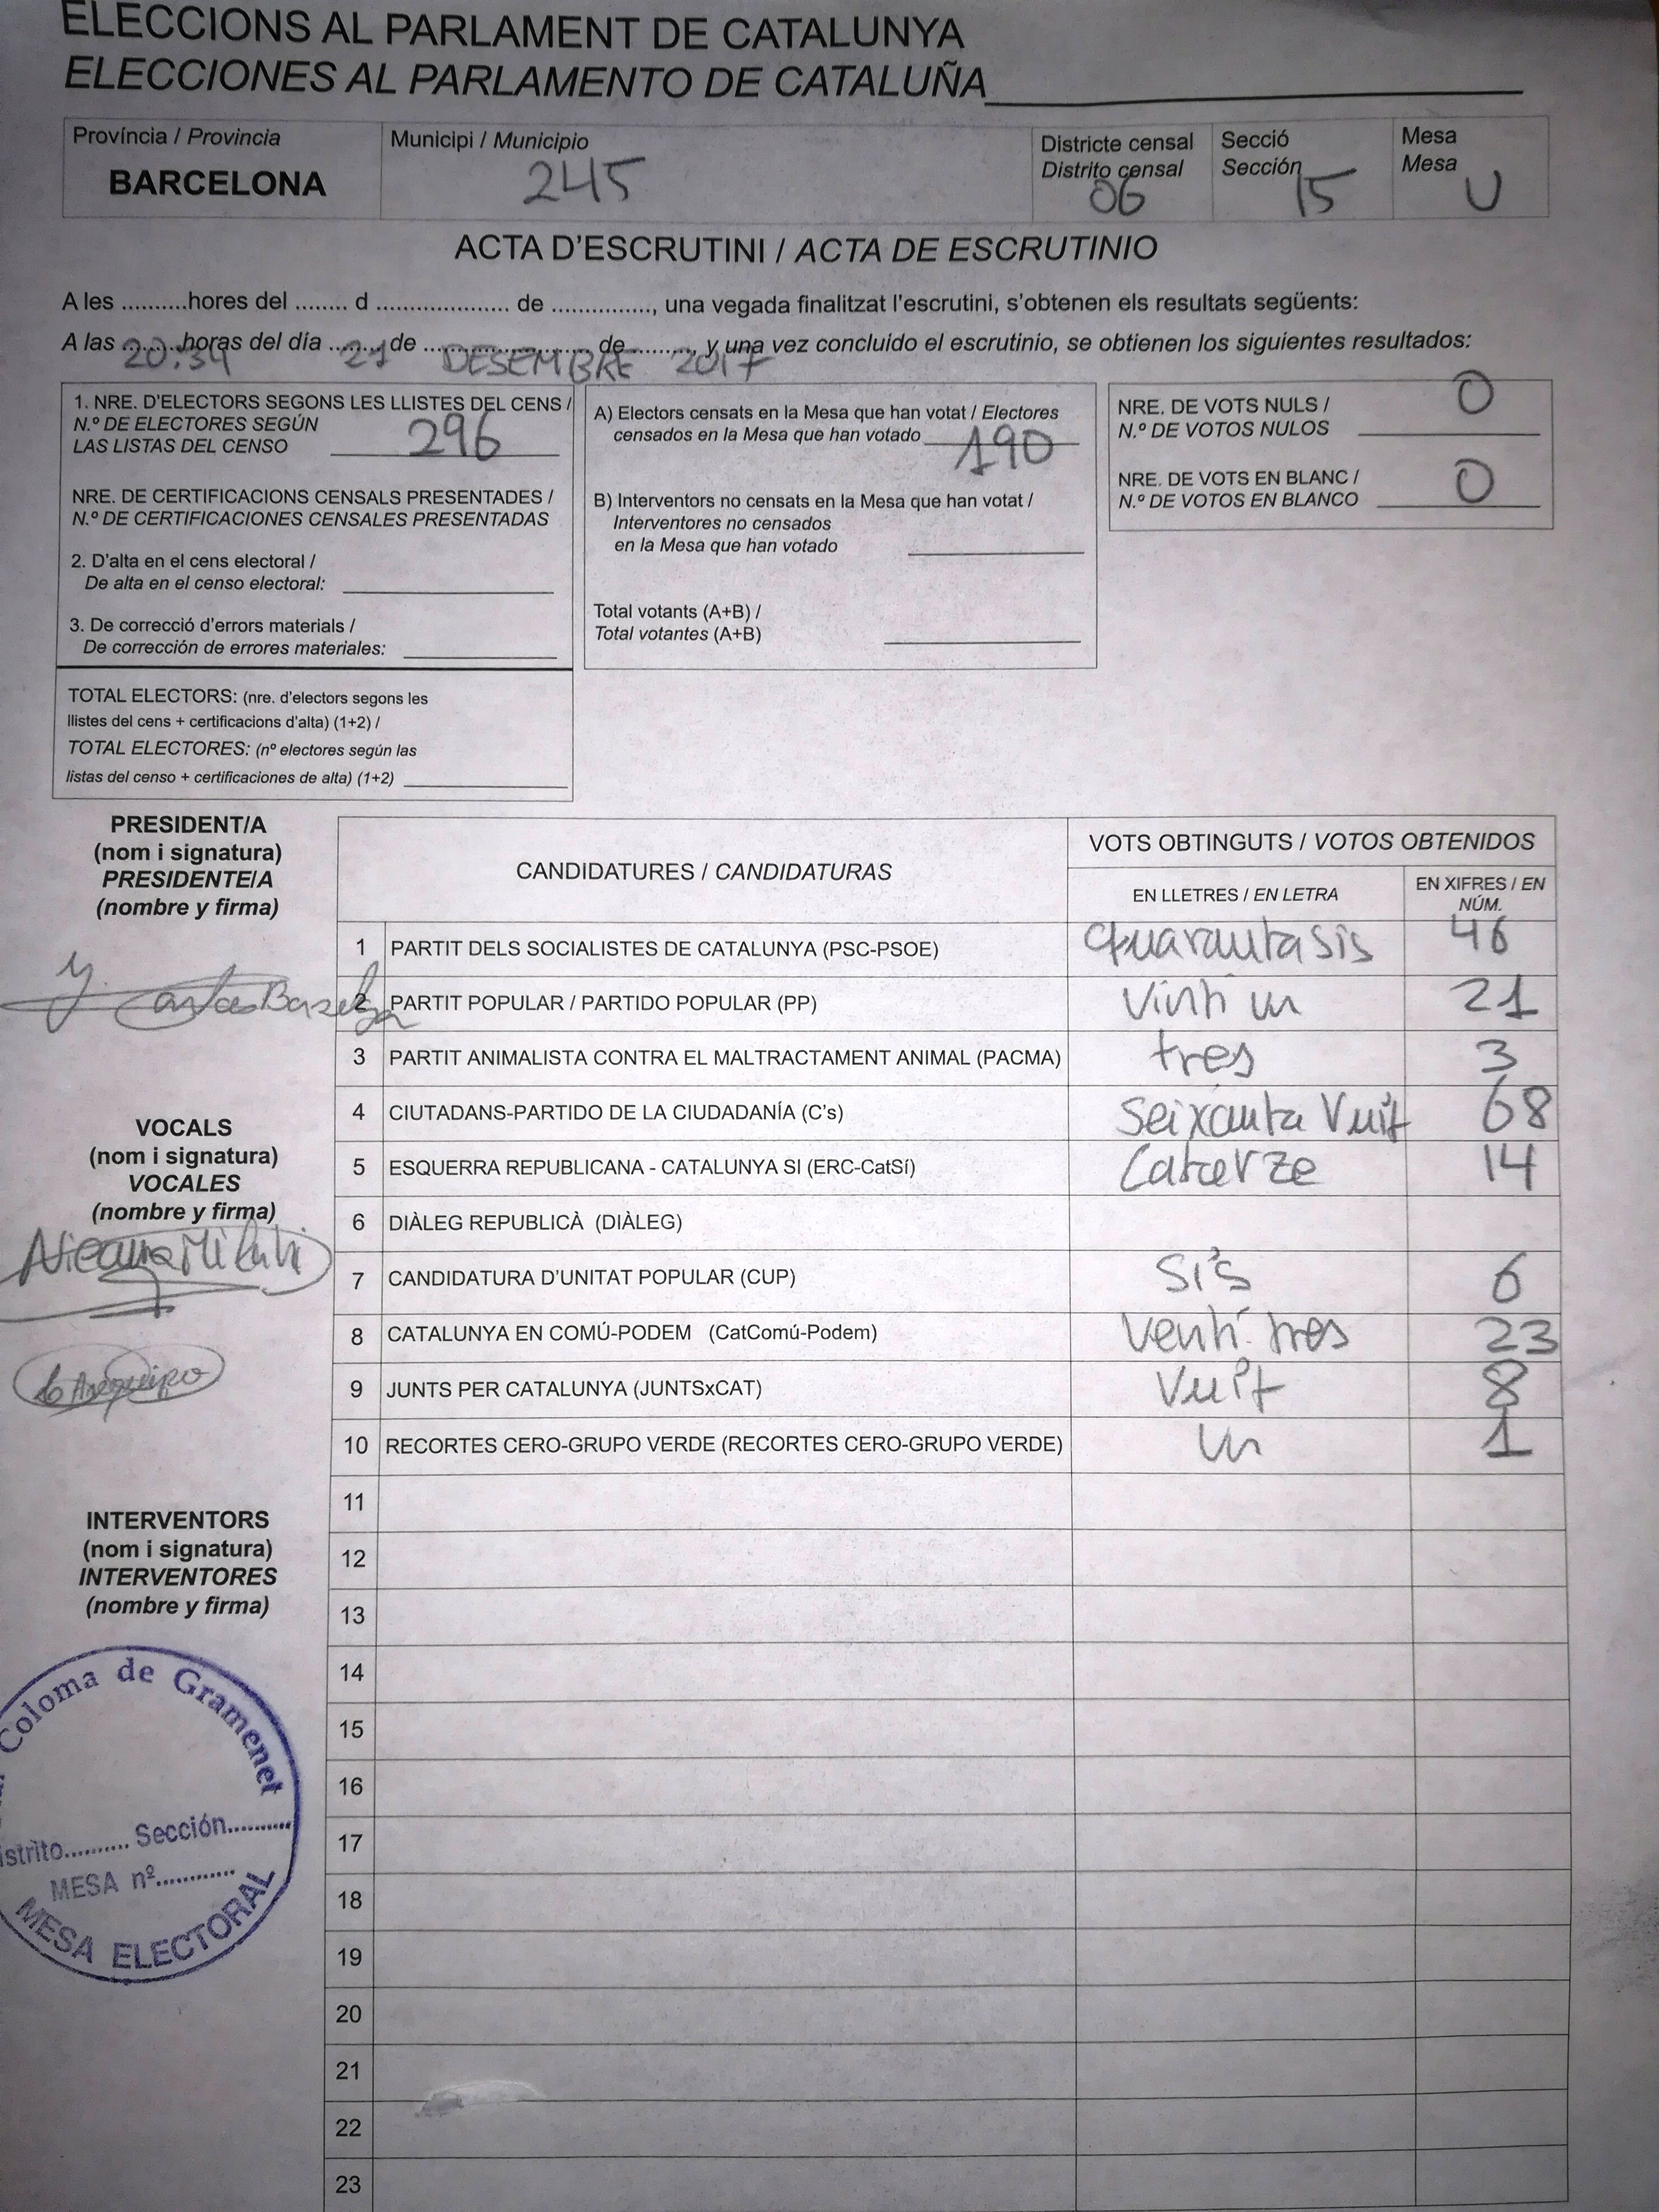 ELECCIONS AL PARLAMENT DE CATALUNYA
ELECCIONES AL PARLAMENTO DE CATALUÑA
Província / Provincia
BARCELONA
Municipi / Municipio
245
Districte censal
Distrito censal
06
Secció
Sección
15
Mesa
Mesa
U
ACTA D'ESCRUTINI / ACTA DE ESCRUTINIO
A les ..........hores del ........ d .................... de ..............., una vegada finalitzat l'escrutini, s'obtenen els resultats següents:
A las 20:34 horas del día 21 de DESEMBRE de 2017 y una vez concluido el escrutinio, se obtienen los siguientes resultados:
1. NRE. D'ELECTORS SEGONS LES LLISTES DEL CENS /
N.º DE ELECTORES SEGÚN
LAS LISTAS DEL CENSO 296
NRE. DE CERTIFICACIONS CENSALS PRESENTADES /
N.º DE CERTIFICACIONES CENSALES PRESENTADAS
2. D'alta en el cens electoral /
De alta en el censo electoral:
3. De correcció d'errors materials /
De corrección de errores materiales:
TOTAL ELECTORS: (nre. d'electors segons les
llistes del cens + certificacions d'alta) (1+2) /
TOTAL ELECTORES: (nº electores según las
listas del censo + certificaciones de alta) (1+2)
A) Electors censats en la Mesa que han votat / Electores
censados en la Mesa que han votado 190
B) Interventors no censats en la Mesa que han votat /
Interventores no censados
en la Mesa que han votado
Total votants (A+B) /
Total votantes (A+B)
NRE. DE VOTS NULS /
N.º DE VOTOS NULOS 0
NRE. DE VOTS EN BLANC /
N.º DE VOTOS EN BLANCO 0
PRESIDENT/A
(nom i signatura)
PRESIDENTE/A
(nombre y firma)
VOCALS
(nom i signatura)
VOCALES
(nombre y firma)
INTERVENTORS
(nom i signatura)
INTERVENTORES
(nombre y firma)
Coloma de Gramenet
istrito.......... Sección..........
MESA nº............
MESA ELECTORAL
CANDIDATURES / CANDIDATURAS
VOTS OBTINGUTS / VOTOS OBTENIDOS
EN LLETRES / EN LETRA
EN XIFRES / EN
NÚM.
1 PARTIT DELS SOCIALISTES DE CATALUNYA (PSC-PSOE) quarantasis 46
2 PARTIT POPULAR / PARTIDO POPULAR (PP) Vinti un 21
3 PARTIT ANIMALISTA CONTRA EL MALTRACTAMENT ANIMAL (PACMA) tres 3
4 CIUTADANS-PARTIDO DE LA CIUDADANÍA (C's) Seixanta Vuit 68
5 ESQUERRA REPUBLICANA - CATALUNYA SI (ERC-CatSí) Catorze 14
6 DIÀLEG REPUBLICÀ (DIÀLEG)
7 CANDIDATURA D'UNITAT POPULAR (CUP) Sis 6
8 CATALUNYA EN COMÚ-PODEM (CatComú-Podem) Venti tres 23
9 JUNTS PER CATALUNYA (JUNTSxCAT) Vuit 8
10 RECORTES CERO-GRUPO VERDE (RECORTES CERO-GRUPO VERDE) Un 1
11
12
13
14
15
16
17
18
19
20
21
22
23